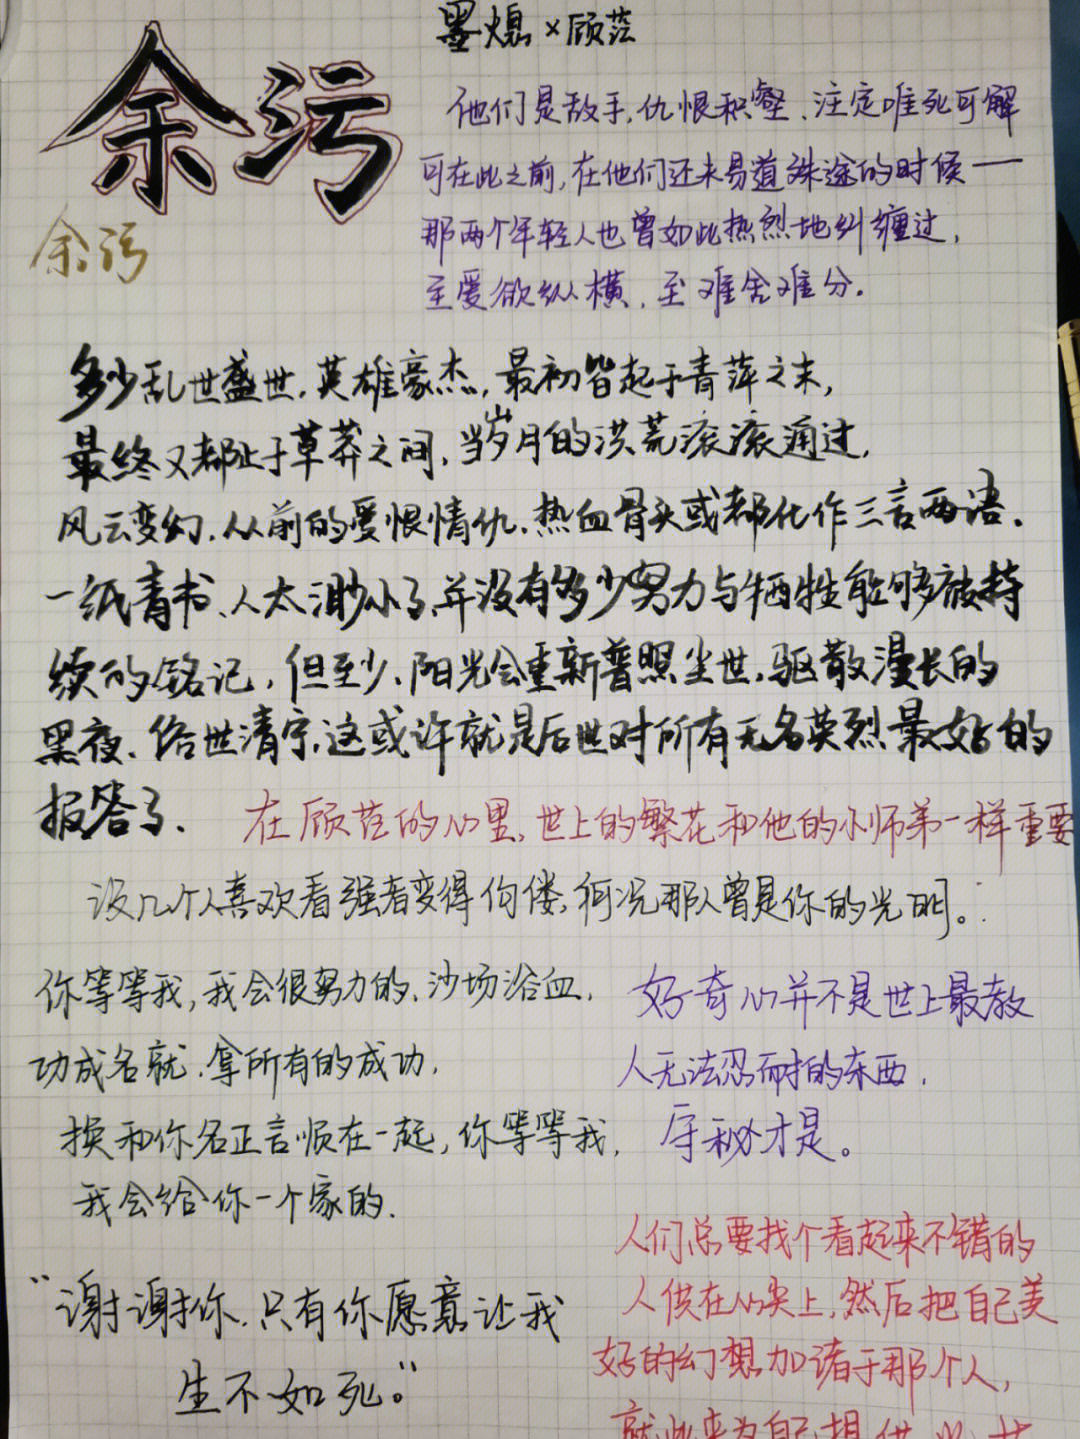 余污
余污
墨熄×顾茫
他们是敌手,仇恨积壑、注定唯死可解
可在此之前,在他们还未易道殊途的时候——
那两个年轻人也曾如此热烈地纠缠过,
至爱欲纵横,至难舍难分.
多少乱世盛世,英雄豪杰,最初皆起于青萍之末,
最终又都止于草莽之间,当岁月的洪荒滚滚通过,
风云变幻,从前的爱恨情仇,热血骨头或都化作三言两语.
一纸青书、人太渺小了,并没有多少努力与牺牲能够被持
续的铭记,但至少,阳光会重新普照尘世,驱散漫长的
黑夜、给世清宁,这或许就是后世对所有无名英烈最好的
报答了.
在顾茫的心里,世上的繁花和他的小师弟一样重要
没几个人喜欢看强者变得佝偻,何况那人曾是你的光明。
你等等我,我会很努力的、沙场浴血,
功成名就,拿所有的成功,
换和你名正言顺在一起,你等等我,
我会给你一个家的.
好奇心并不是世上最教
人无法忍耐的东西,
守秘才是。
“谢谢你,只有你愿意让我
生不如死。”
人们总要找个看起来不错的
人供在心尖上,然后把自己美
好的幻想加诸于那个人,